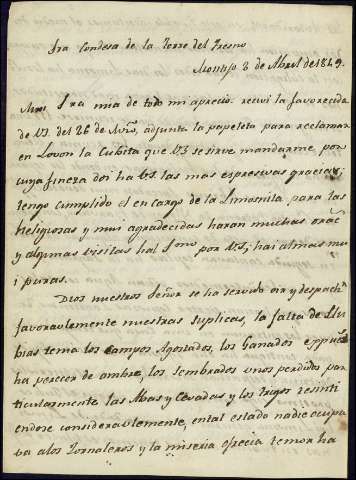 Sra Condesa de la Torre del Fresno
Montijo 2 de Abril de 1849.
Mui Sra mia de todo mi aprecio: recivi la favorecida
de VS. del 26 de Mzo, adjunta la papeleta para reclamar
en Lovon la Cubita que VS se sirve mandarme, por
cuya fineza doi ha VS. las mas espresivas gracias;
tengo cumplido el encargo de la Limosnita para las
Religiosas y mui agradecidas haran muchas orac
y algunas visitas hal Smo por VS; hai almas mu
i puras.
Dios nuestro Señor se ha servido oir y despach
favoravlemente nuestras suplicas, la falta de Llu
bias tenia los campos Agostados, los Ganados
ha perecer de ambre, los sembrados unos perdidos par
ticularmente las Abas y Cevadas y los trigos resinti
endose consideravlemente, en tal estado nadie ocupa
va a los Jornaleros y la miseria ofrecia temor ha